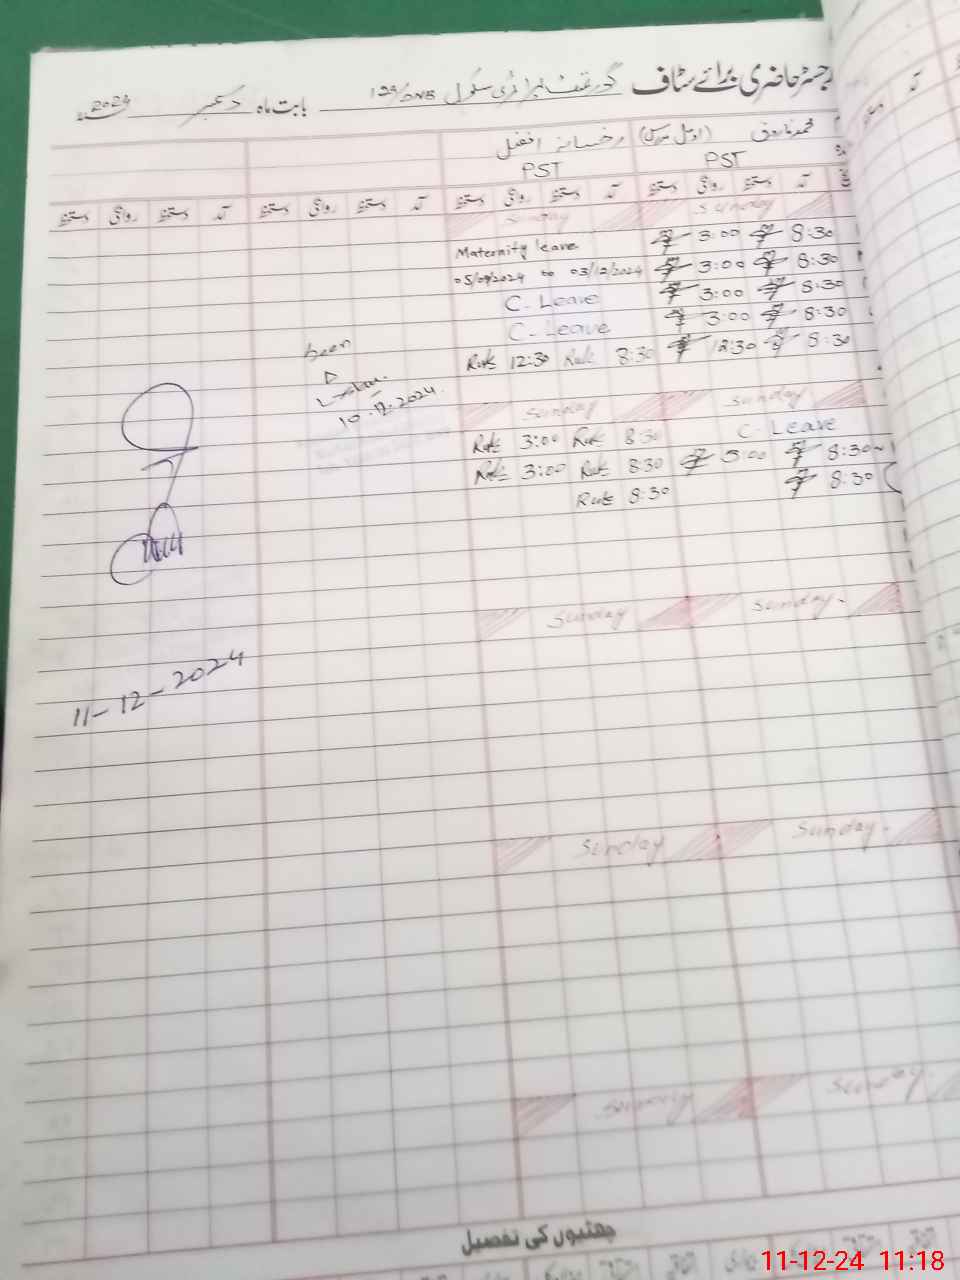 رجسٹر حاضری برائے سٹاف گورنمنٹ پرائمری سکول 129/DNB بابت ماہ دسمبر 2024ء
محمد فاروق (اول مدرس) رخسانہ افضل
PST PST
آمد دستخط روانگی دستخط آمد دستخط روانگی دستخط آمد دستخط روانگی دستخط آمد دستخط روانگی دستخط
Sunday Sunday
Maternity leave 3:00 8:30
05/09/2024 to 03/12/2024 3:00 8:30
C. Leave 3:00 8:30
C. Leave 3:00 8:30
12:30 8:30 12:30 8:30
been
10.12.2024
Sunday Sunday
3:00 8:30 C. Leave
3:00 8:30 3:00 8:30
8:30 8:30
Sunday Sunday
11-12-2024
Sunday Sunday
Sunday Sunday
چھٹیوں کی تفصیل
11-12-24 11:18